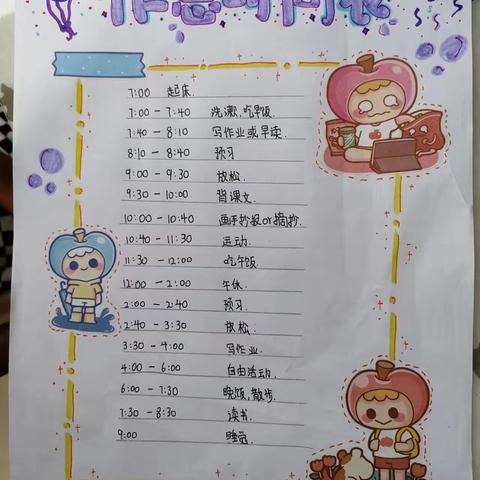 作息时间表
7:00 起床.
7:00 - 7:40 洗漱,吃早饭.
7:40 - 8:10 写作业或早读.
8:10 - 8:40 预习
9:00 - 9:30 放松.
9:30 - 10:00 背课文.
10:00 - 10:40 画手抄报or摘抄.
10:40 - 11:30 运动.
11:30 - 12:00 吃午饭.
12:00 - 2:00 午休.
2:00 - 2:40 预习.
2:40 - 3:30 放松.
3:30 - 4:00 写作业.
4:00 - 6:00 自由活动.
6:00 - 7:30 晚饭,散步.
7:30 - 8:30 读书.
9:00 睡觉.